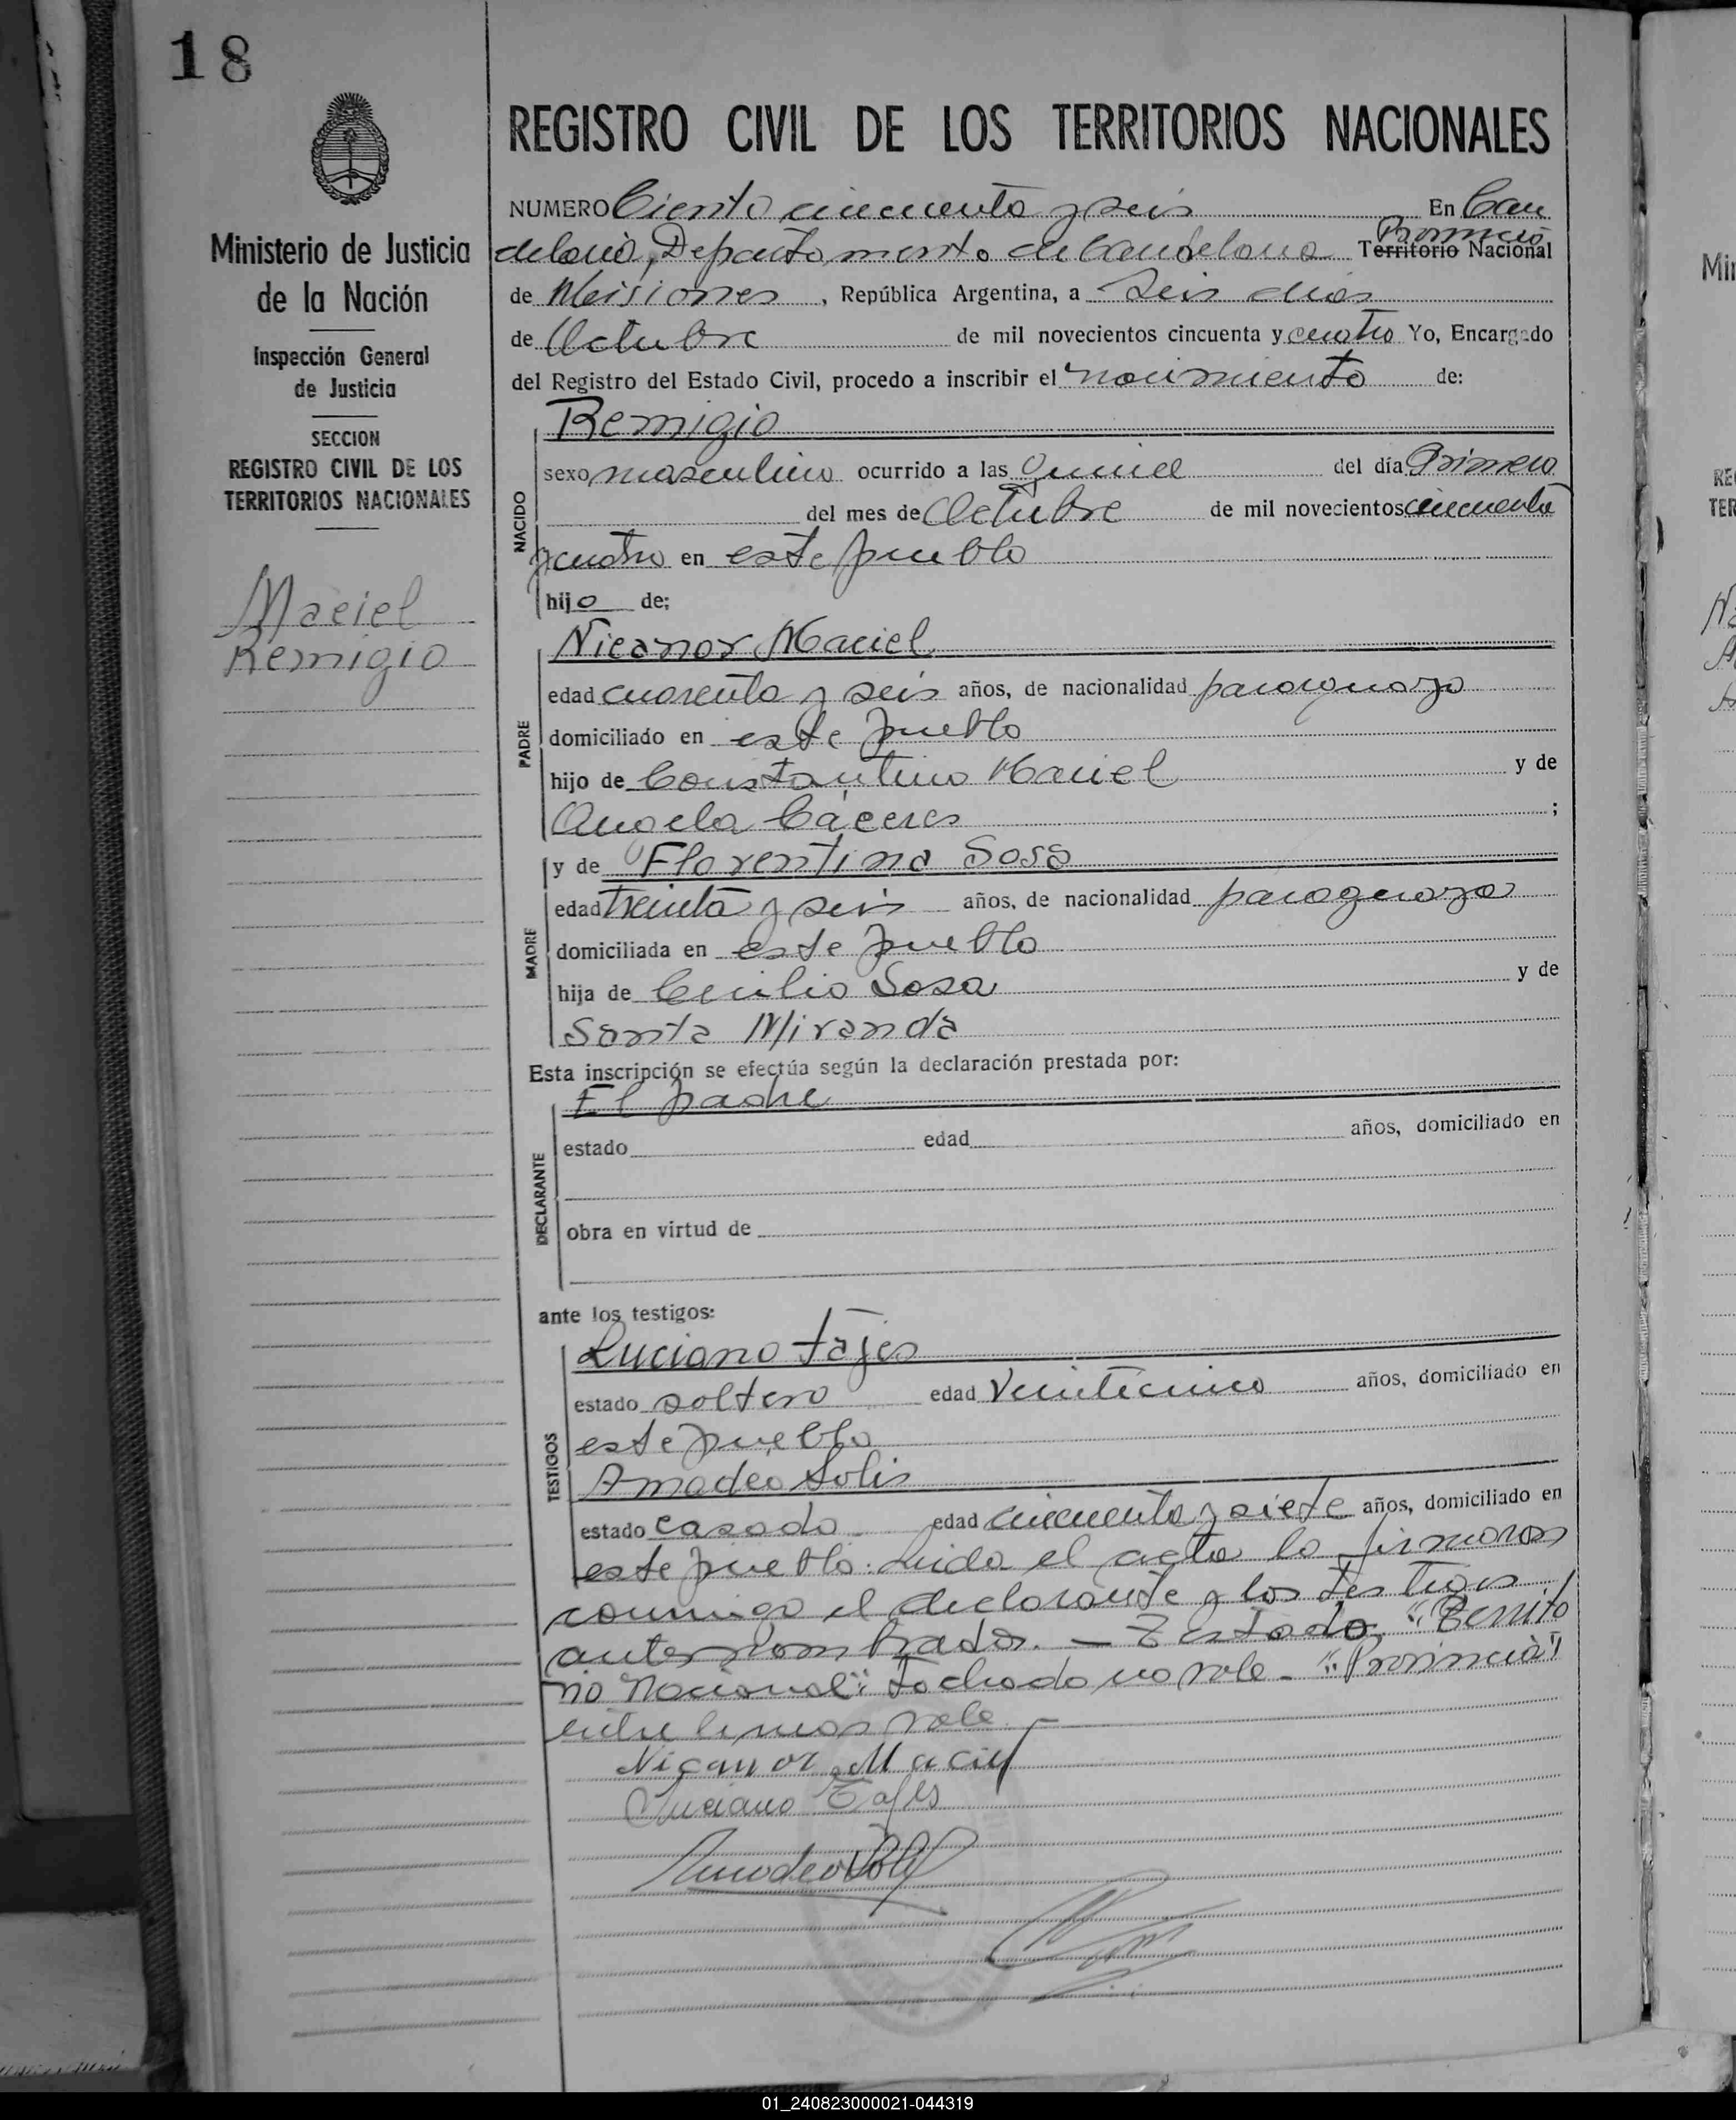 18
REGISTRO CIVIL DE LOS TERRITORIOS NACIONALES
Ministerio de Justicia
de la Nación
Inspección General
de Justicia
SECCION
REGISTRO CIVIL DE LOS
TERRITORIOS NACIONALES
Maciel
Remigio
NUMERO Ciento cincuenta y seis En Can
delaria, Departamento de Candelaria Provincia Territorio Nacional
de Misiones, República Argentina, a Seis dias
de Octubre de mil novecientos cincuenta y cuatro Yo, Encargado
del Registro del Estado Civil, procedo a inscribir el nacimiento de:
NACIDO
Remigio
sexo masculino ocurrido a las Quince del día Primero
del mes de Octubre de mil novecientos cincuenta
y cuatro en este pueblo
hijo de;
PADRE
Nicanor Maciel
edad cuarenta y seis años, de nacionalidad paraguayo
domiciliado en este pueblo
hijo de Constantino Maciel y de
Angela Cáceres ;
MADRE
y de Florentina Sosa
edad treinta y seis años, de nacionalidad paraguaya
domiciliada en este pueblo
hija de Cecilio Sosa y de
Santa Miranda
Esta inscripción se efectúa según la declaración prestada por:
DECLARANTE
El padre
estado edad años, domiciliado en
obra en virtud de
ante los testigos:
TESTIGOS
Luciano Tajes
estado soltero edad veinticinco años, domiciliado en
este pueblo
Amadeo Solis
estado casado edad cincuenta y siete años, domiciliado en
este pueblo. Leida el acta la firmaron
conmigo el declarante y los testigos
antes nombrados. — Testado "Territo
rio Nacional": tachado no vale - "Provincia"
entre lineas vale —
Nicanor Maciel
Luciano Tajes
Amadeo Solis
01_240823000021-044319